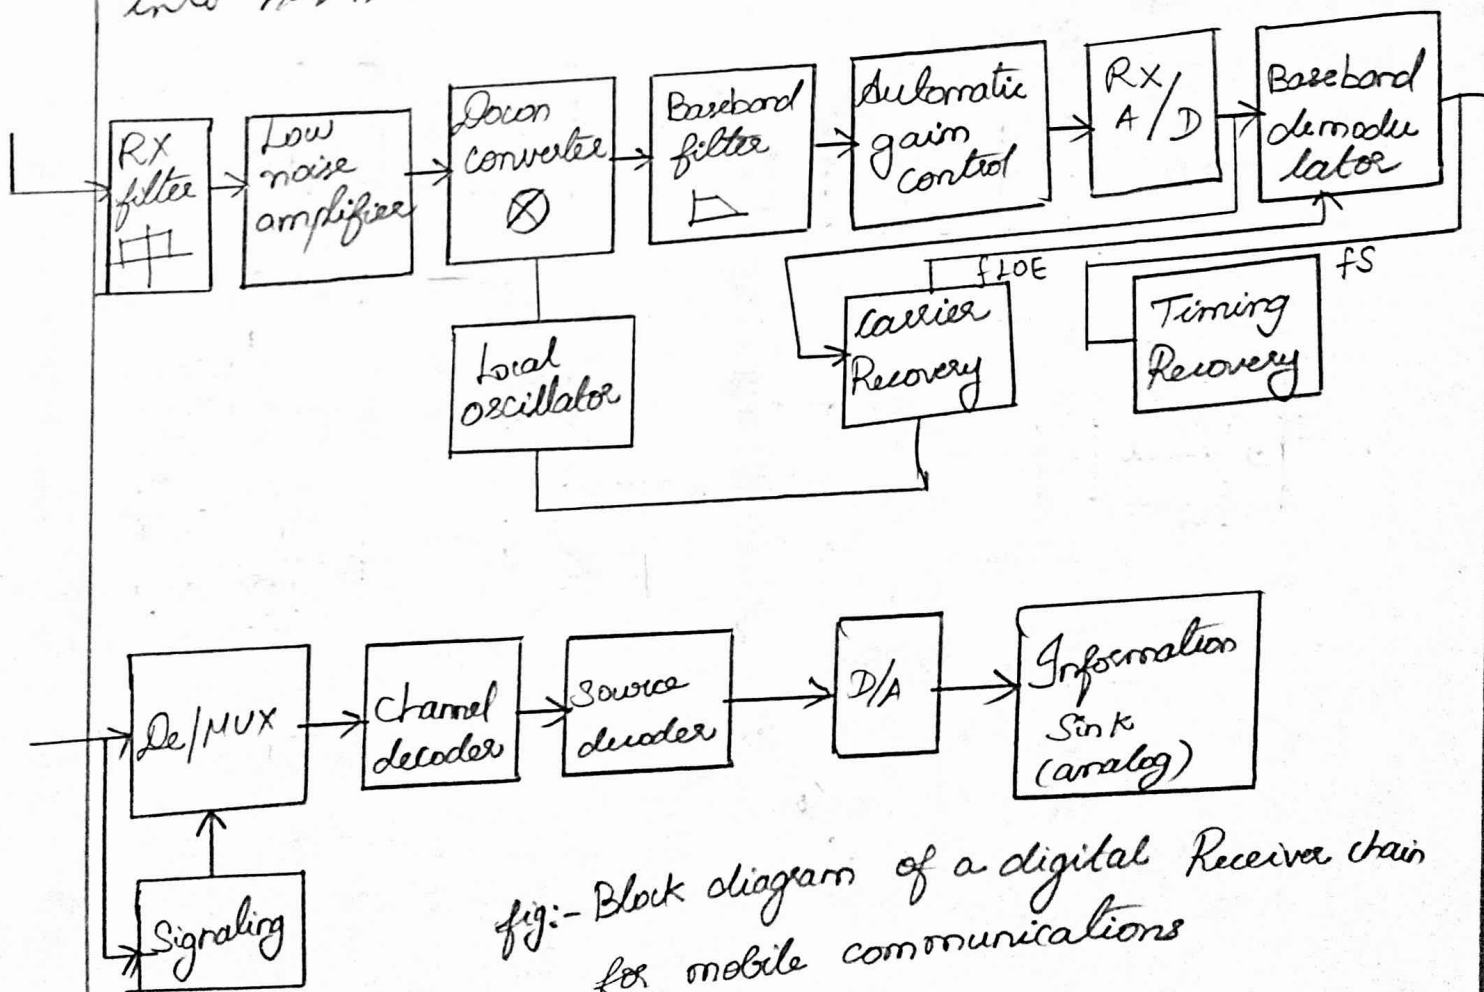 into
RX
filter
Low
noise
amplifier
Down
converter
Baseband
filter
Automatic
gain
control
RX
A/D
Baseband
demodu
lator
fLOE
fS
Carrier
Recovery
Timing
Recovery
Local
oscillator
De/MUX
Channel
decoder
Source
decoder
D/A
Information
Sink
(analog)
Signaling
fig:- Block diagram of a digital Receiver chain
for mobile communications